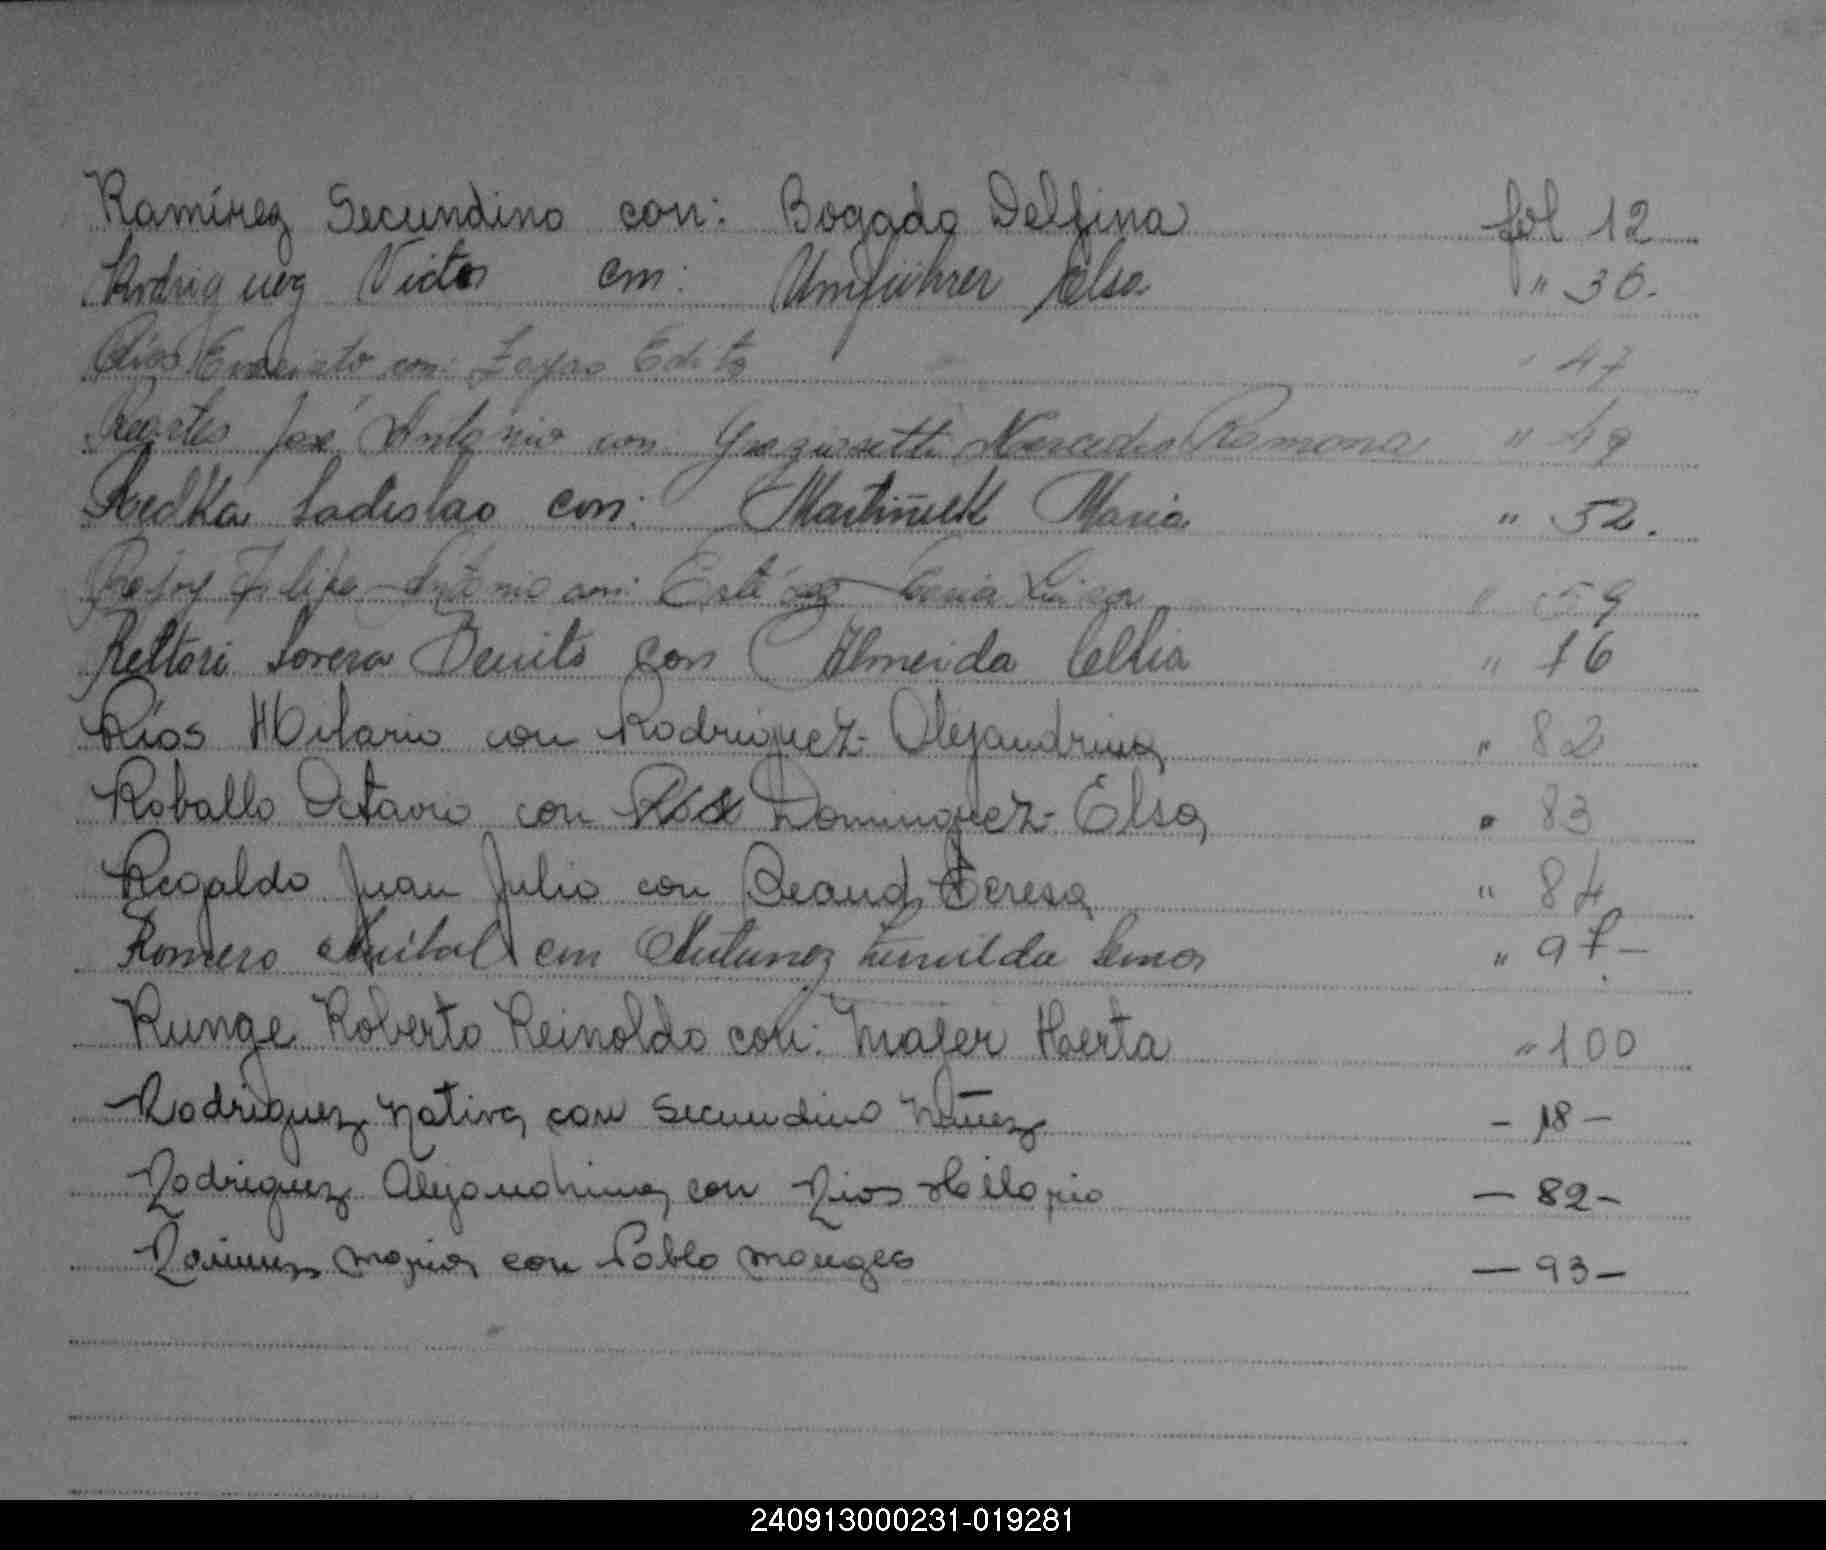 Ramírez Secundino con: Bogado Delfina fol 12
Rodriguez Victor con: Umfuhrer Elsa " 36.
Ríos Evaristo con: Zayas Edita " 47
José Antonio con Mercedes Ramona " 49
Redka Ladislao con: Martiñuk Maria " 52.
Felipe Antonio con: Luisa " 59
Rettori Lorera Benito con Almeida Celia " 76
Ríos Hilario con Rodriguez Alejandrina " 82
Roballo Octavio con Dominguez Elsa " 83
Regaldo Juan Julio con Beaud Teresa " 84
Romero Anibal con Antunez Lema " 97 -
Runge Roberto Reinoldo con: Maser Herta " 100
Rodriguez Nativa con Secundino Núñez - 18 -
Rodriguez Alejandrina con Rios Hilario - 82 -
Maria con Pablo Monges - 93 -
240913000231-019281